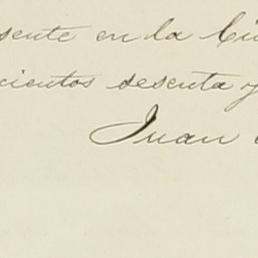 sente en la Ciu
cientos sesenta y
Juan